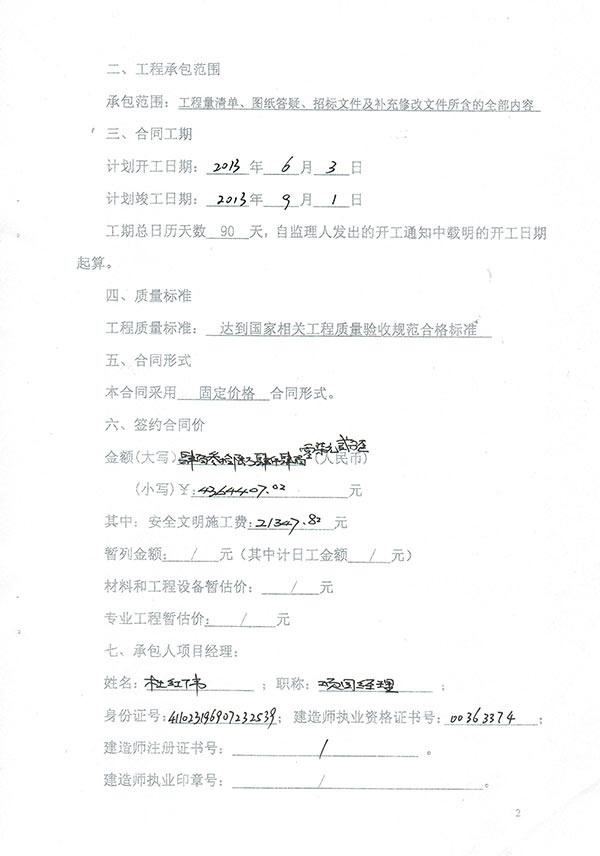 二、工程承包范围
承包范围：工程量清单、图纸答疑、招标文件及补充修改文件所含的全部内容
三、合同工期
计划开工日期：2013年6月3日
计划竣工日期：2013年9月1日
工期总日历天数 90 天，自监理人发出的开工通知中载明的开工日期
起算。
四、质量标准
工程质量标准：达到国家相关工程质量验收规范合格标准
五、合同形式
本合同采用 固定价格 合同形式。
六、签约合同价
金额(大写)肆佰叁拾陆万肆仟肆佰零柒元贰分(人民币)
(小写)￥:4364407.02 元
其中：安全文明施工费:21347.82 元
暂列金额：/ 元（其中计日工金额 / 元）
材料和工程设备暂估价：/ 元
专业工程暂估价：/ 元
七、承包人项目经理：
姓名：杜红伟 ；职称：项目经理 ；
身份证号：411023196907232539；建造师执业资格证书号：00363374 ；
建造师注册证书号： / 。
建造师执业印章号： / 。
2